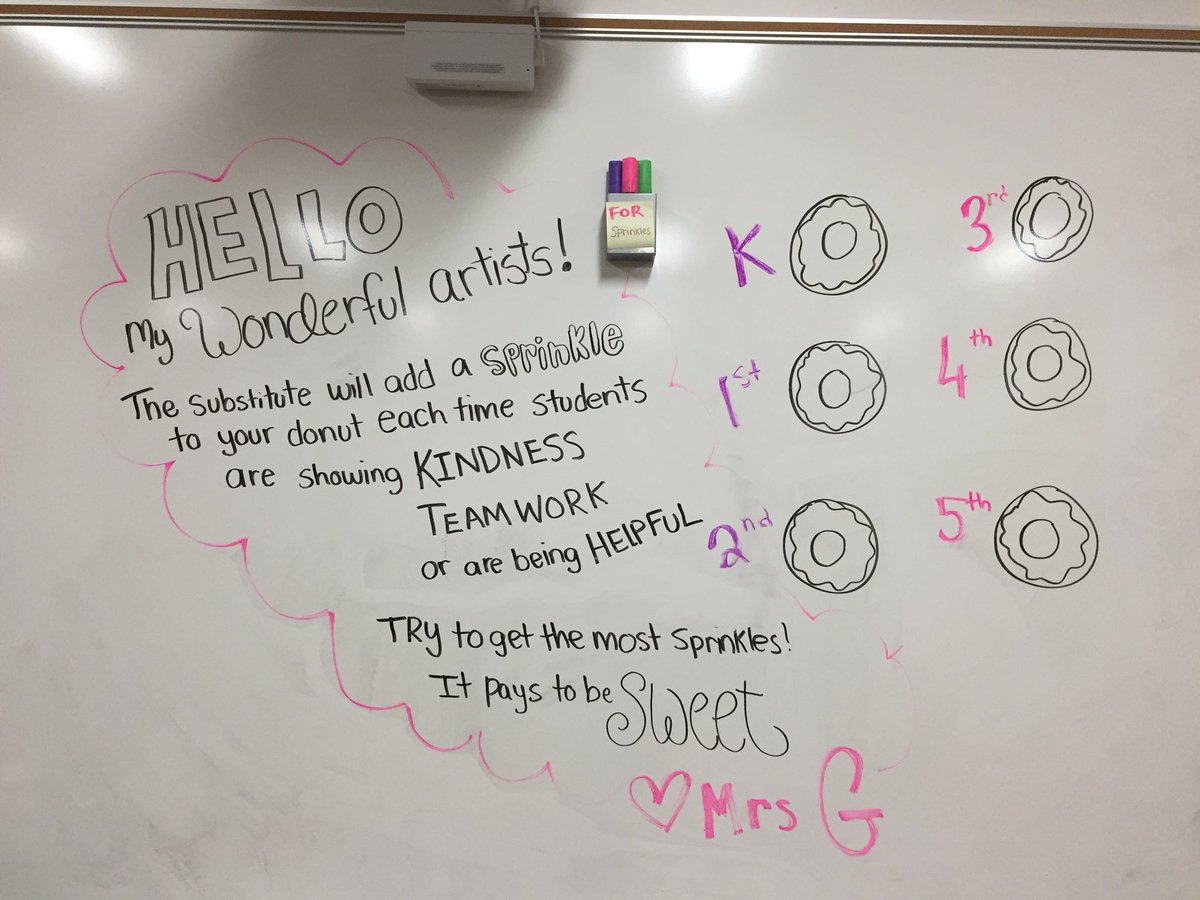 HELLO
My Wonderful artists!
The substitute will add a Sprinkle
to your donut each time students
are showing KINDNESS
TEAMWORK
or are being HELPFUL
TRY to get the most Sprinkles!
It pays to be Sweet
♡ Mrs G
FOR
Sprinkles
K
1st
2nd
3rd
4th
5th